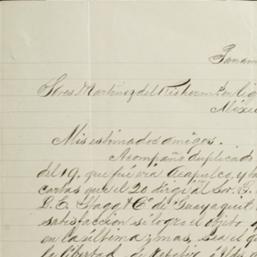 Panam
Sres. Martinez del Rio herm
México
Mis estimados amigos.
Acompaño duplicado
del 19, que fué via Acapulco, y
cartas que el 20 dirigí al Sor. B.
L. E. Stagg &Cª de Guayaquil
satisfaccion si logro el objeto
en las últimas mas, sea el q
la libertad de